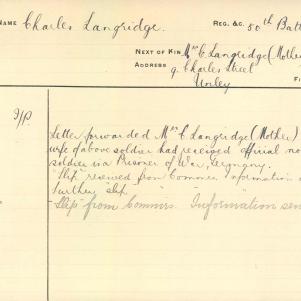 NAME Charles Langridge. REG. &C. 50th Batt
NEXT OF KIN Mrs C. Langridge (Mother
ADDRESS 9. Charles Street
Unley
Letter forwarded Mrs C. Langridge (Mother)
wife of above soldier had received official no
soldier is a Prisoner of War, Germany.
"Slip" received from Commrs Information
Further "slip" " " "
"Slip" from Commrs. "Information" sen